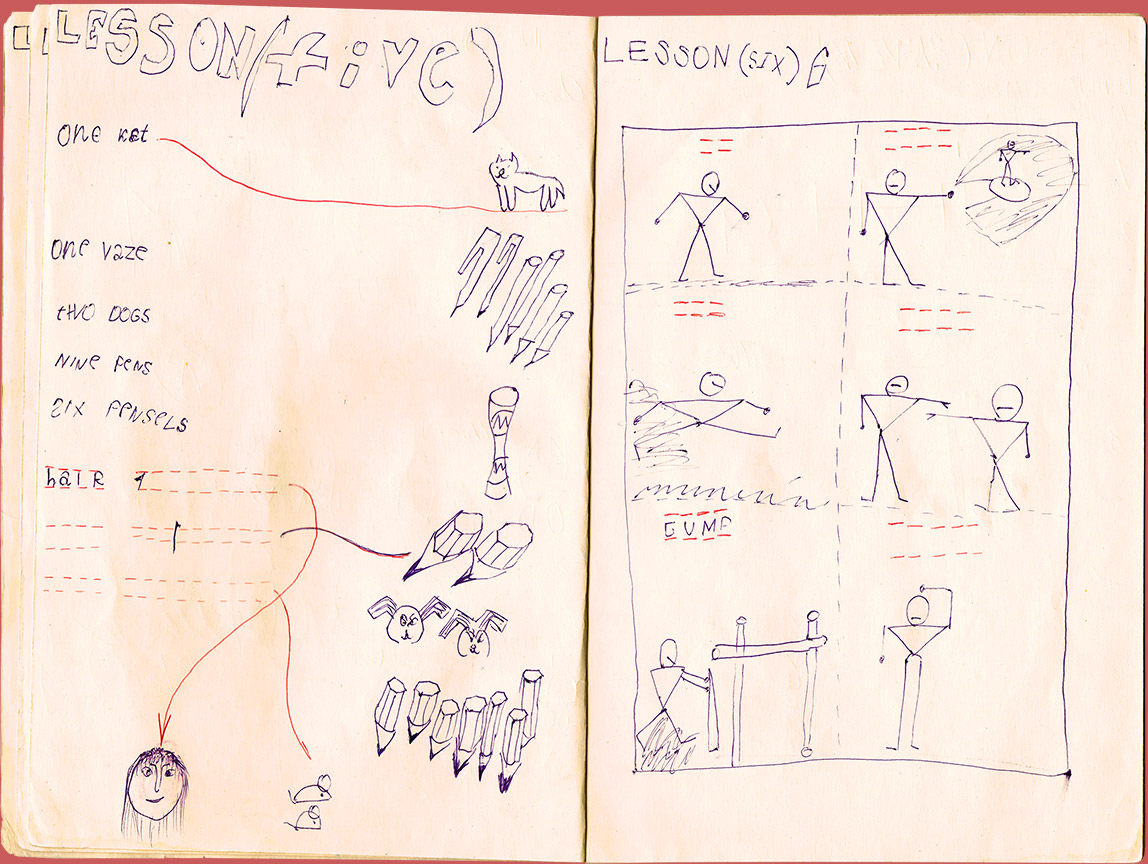 LESSON(five)
one ket
one vaze
two DOGS
NINE PENS
SIX PENSELS
hair 1
1
LESSON (SIX) 6
GUMP